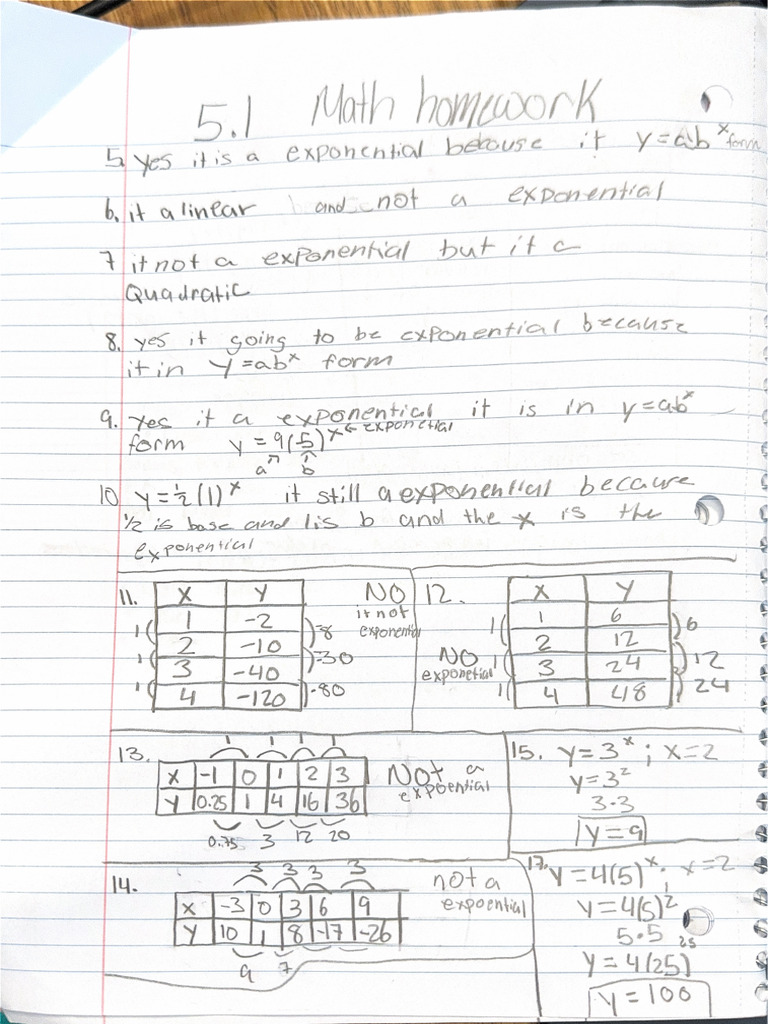 5.1 Math homework
5. yes it is a exponential because it y=ab^x form
6. it a linear and not a exponential
7 it not a exponential but it a
Quadratic
8. yes it going to be exponential because
it in y=ab^x form
9. yes it a exponential it is in y=ab^x
form y = 9(-5)^x ← exponetial
a b
10 y=½(1)^x it still a exponential because
½ is base and 1 is b and the x is the
exponential
11. X Y NO
1 -2 it not
1 2 -10 -8 exponential
1 3 -40 -30
1 4 -120 -80
12. X Y
1 6
1 2 12 6
NO 1 3 24 12
exponetial 1 4 48 24
13. 1 1 1 1
X -1 0 1 2 3 Not a
Y 0.25 1 4 16 36 expoential
0.75 3 12 20
15. y=3^x ; x=2
y=3^2
3·3
y=9
14. 3 3 3 3 not a
X -3 0 3 6 9 expoential
Y 10 1 8 -17 -26
9 7
17. y=4(5)^x ; x=2
y=4(5)^2
5·5 25
y=4(25)
y=100